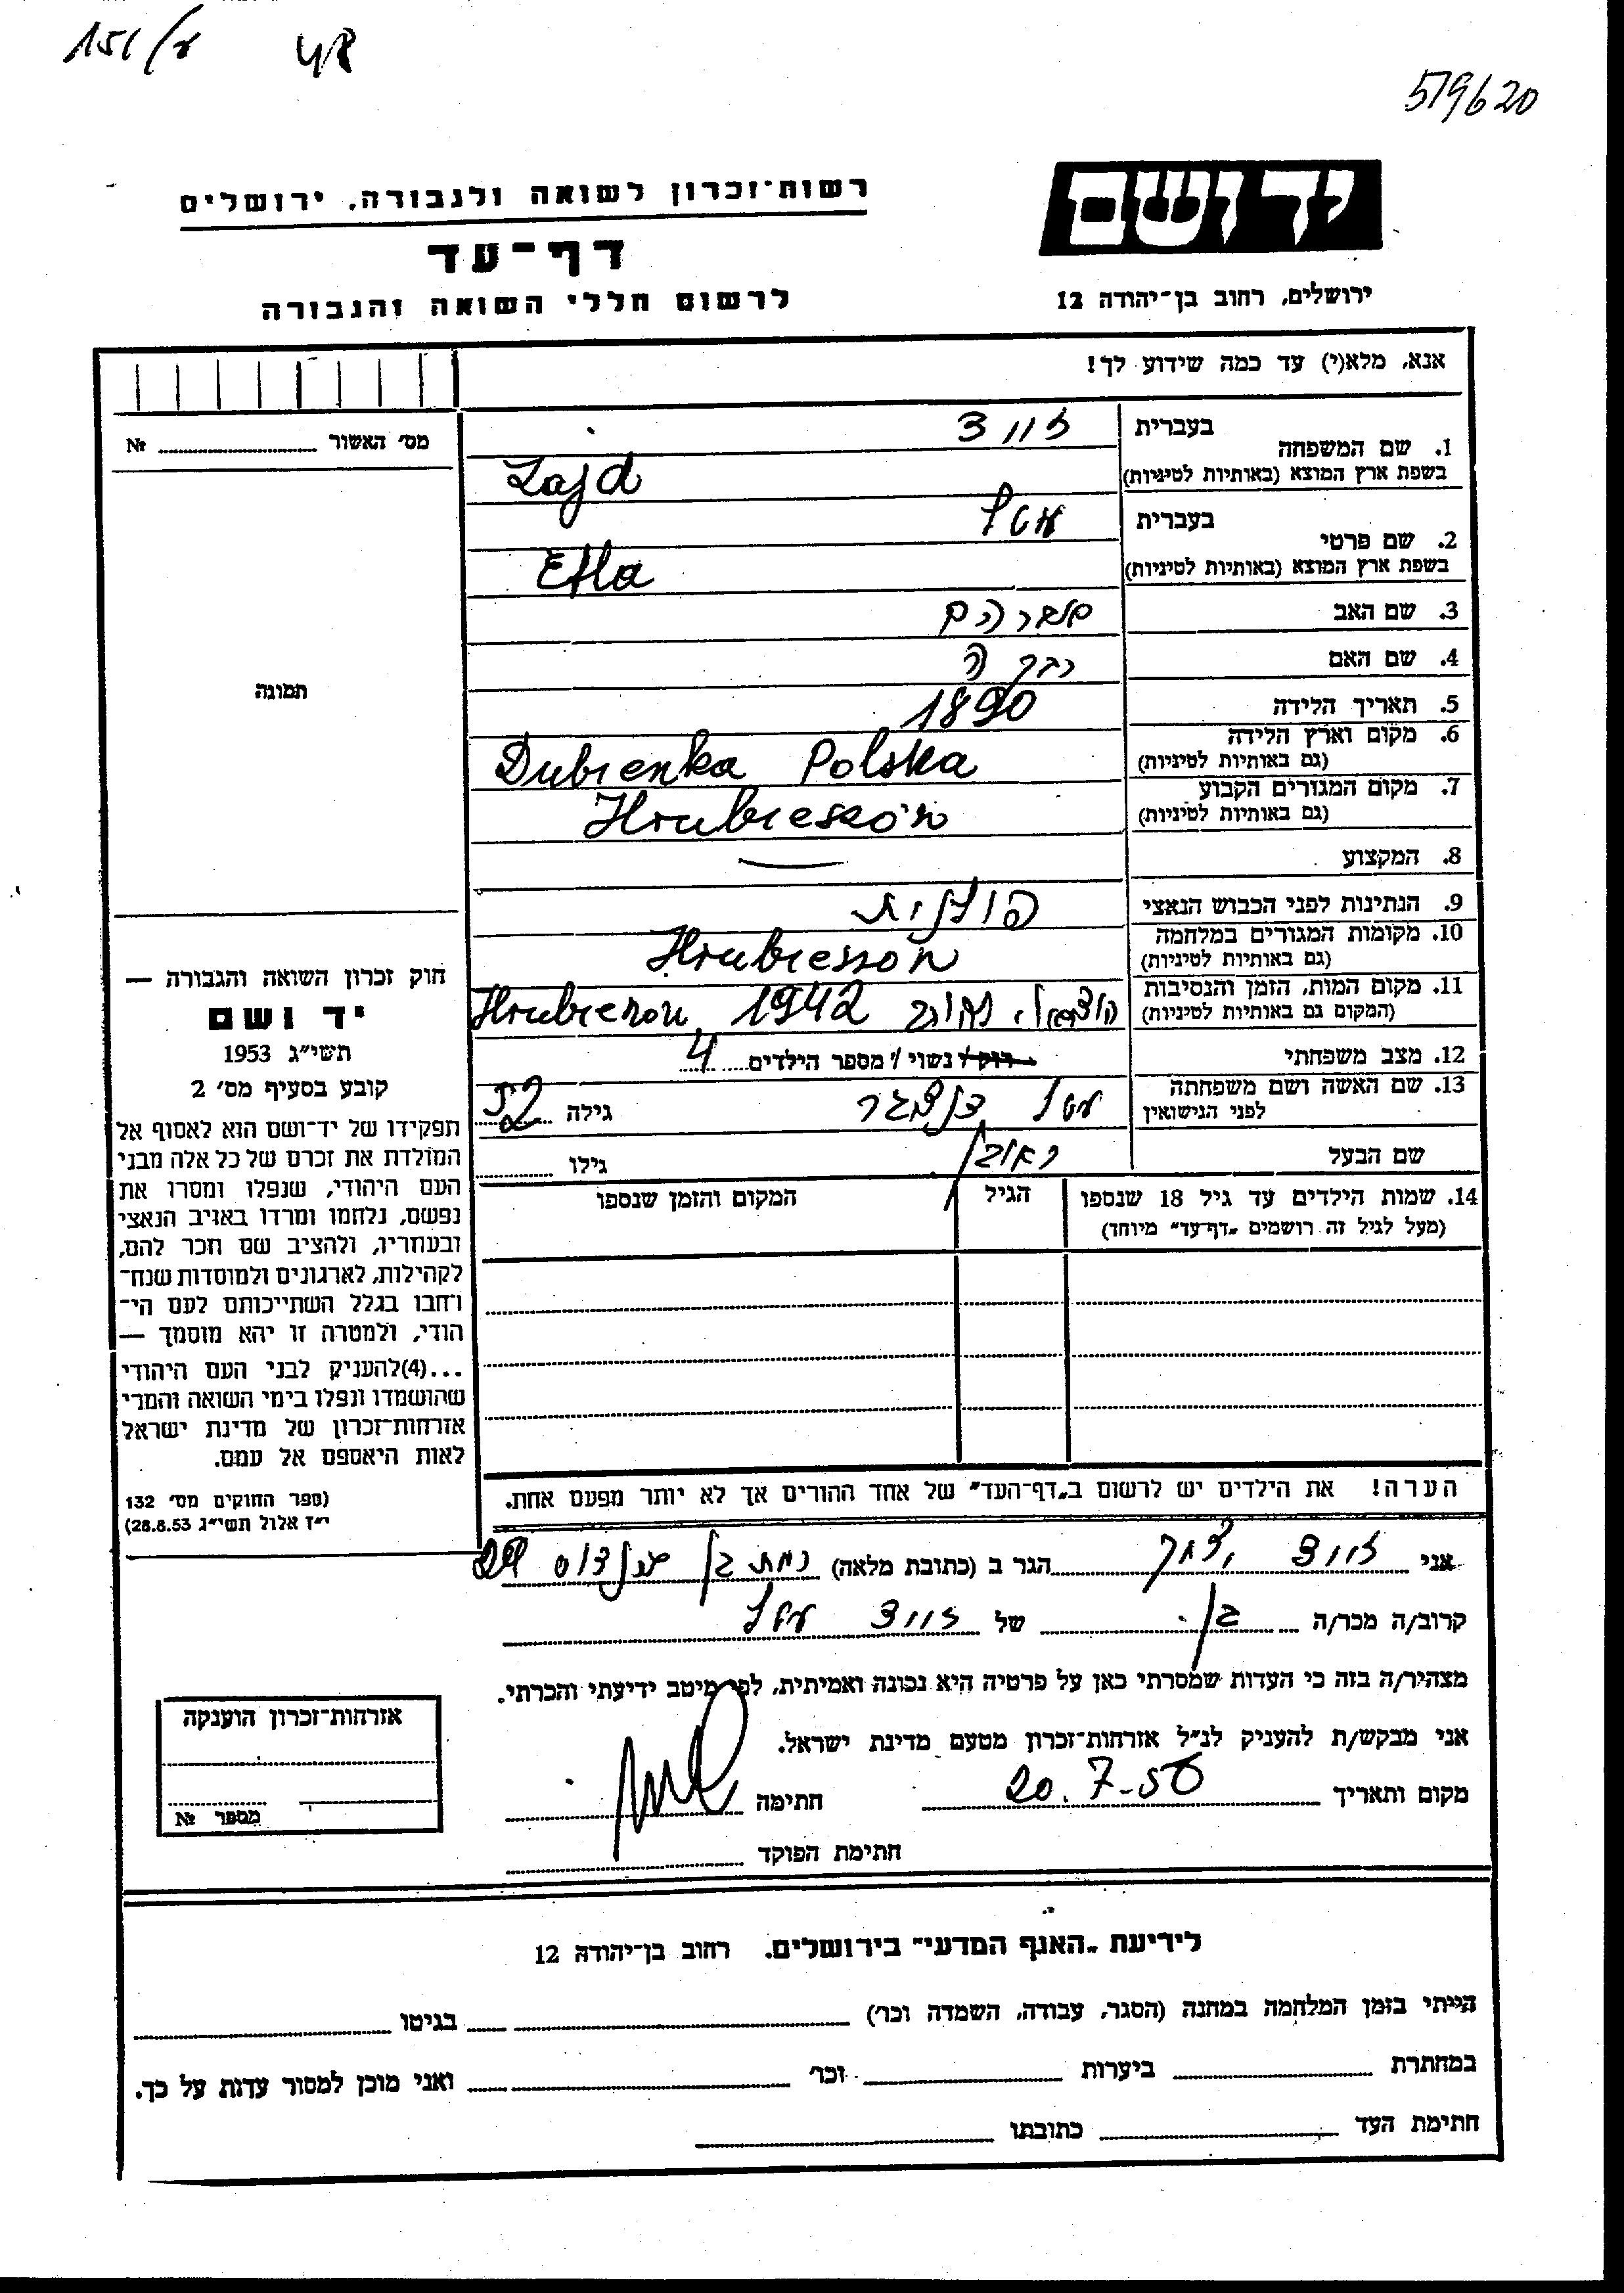 151/ע 48
519620
יד ושם
רשות־זכרון לשואה ולגבורה, ירושלים
דף־עד
לרשום חללי השואה והגבורה
ירושלים, רחוב בן־יהודה 12
אנא, מלא(י) עד כמה שידוע לך!
מס׳ האשור № ........
1. שם המשפחה בעברית זייד
בשפת ארץ המוצא (באותיות לטיניות) Zajd
2. שם פרטי בעברית עטל
בשפת ארץ המוצא (באותיות לטיניות) Etla
3. שם האב אברהם
4. שם האם רבקה
תמונה
5. תאריך הלידה 1890
6. מקום וארץ הלידה (גם באותיות לטיניות) Dubienka Polska
7. מקום המגורים הקבוע (גם באותיות לטיניות) Hrubieszów
8. המקצוע —
9. הנתינות לפני הכבוש הנאצי פולנית
10. מקומות המגורים במלחמה (גם באותיות לטיניות) Hrubieszów
11. מקום המות, הזמן והנסיבות (המקום גם באותיות לטיניות) 1942
12. מצב משפחתי רוק / נשוי / מספר הילדים 4
13. שם האשה ושם משפחתה לפני הנישואין עטל גילה 52
שם הבעל ראובן גילו ........
14. שמות הילדים עד גיל 18 שנספו הגיל המקום והזמן שנספו
(מעל לגיל זה רושמים „דף־עד״ מיוחד)
חוק זכרון השואה והגבורה —
יד ושם
תשי״ג 1953
קובע בסעיף מס׳ 2
תפקידו של יד־ושם הוא לאסוף אל
המולדת את זכרם של כל אלה מבני
העם היהודי, שנפלו ומסרו את
נפשם, נלחמו ומרדו באויב הנאצי
ובעוזריו, ולהציב שם וזכר להם,
לקהילות, לארגונים ולמוסדות שנח־
רבו בגלל השתייכותם לעם הי־
הודי, ולמטרה זו יהא מוסמך —
...(4) להעניק לבני העם היהודי
שהושמדו ונפלו בימי השואה והמרי
אזרחות־זכרון של מדינת ישראל
לאות היאספם אל עמם.
(ספר החוקים מס׳ 132
י״ז אלול תשי״ג 28.8.53)
הערה! את הילדים יש לרשום ב„דף־העד״ של אחד ההורים אך לא יותר מפעם אחת.
אני זייד יצחק הגר ב (כתובת מלאה) רמת גן
קרוב/ה מכר/ה בן של זייד עטל
מצהיר/ה בזה כי העדות שמסרתי כאן על פרטיה היא נכונה ואמיתית, לפי מיטב ידיעתי והכרתי.
אני מבקש/ת להעניק לנ״ל אזרחות־זכרון מטעם מדינת ישראל.
מקום ותאריך 20.7-56 חתימה
חתימת הפוקד
אזרחות־זכרון הוענקה
מספר №
לידיעת „האגף המדעי״ בירושלים, רחוב בן־יהודה 12
הייתי בזמן המלחמה במחנה (הסגר, עבודה, השמדה וכר׳) ........ בגיטו ........
במחתרת ........ ביערות ........ וכר׳ ........ ואני מוכן למסור עדות על כך.
חתימת העד ........ כתובתו ........